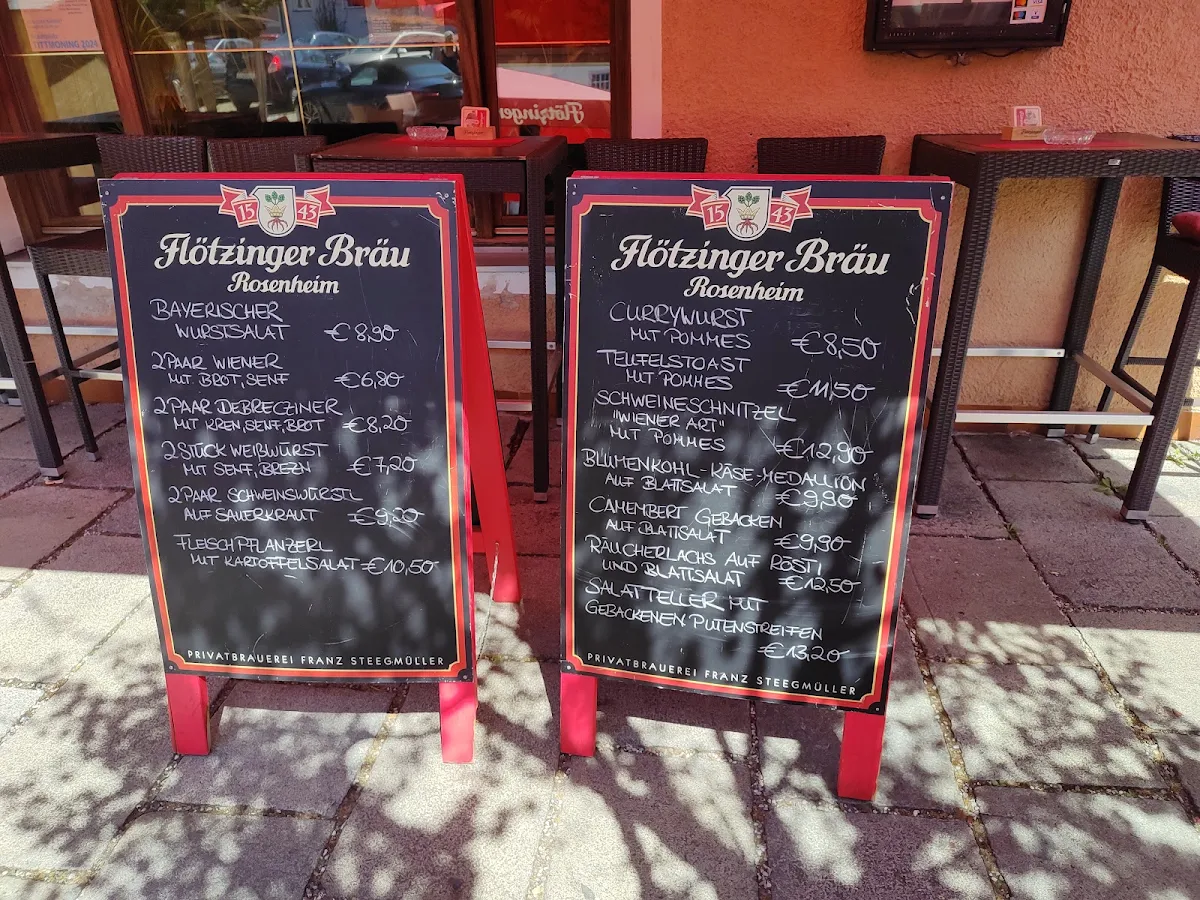 TITTMONING 2024
VISA
Flötzinger
15 43
Flötzinger Bräu
Rosenheim
BAYERISCHER
WURSTSALAT €8,90
2 PAAR WIENER
MIT BROT, SENF €6,80
2 PAAR DEBRECZINER
MIT KREN, SENF, BROT €8,20
2 STÜCK WEIßWÜRST
MIT SENF, BREZN €7,20
2 PAAR SCHWEINSWÜRSTL
AUF SAUERKRAUT €9,20
FLEISCHPFLANZERL
MIT KARTOFFELSALAT €10,50
PRIVATBRAUEREI FRANZ STEEGMÜLLER
15 43
Flötzinger Bräu
Rosenheim
CURRYWURST
MIT POMMES €8,50
TEUFELSTOAST
MIT POMMES €11,50
SCHWEINESCHNITZEL
"WIENER ART"
MIT POMMES €12,90
BLUMENKOHL-KÄSE-MEDALLION
AUF BLATTSALAT €9,90
CAMEMBERT GEBACKEN
AUF BLATTSALAT €9,90
RÄUCHERLACHS AUF RÖSTI
UND BLATTSALAT €12,50
SALATTELLER MIT
GEBACKENEN PUTENSTREIFEN
€13,20
PRIVATBRAUEREI FRANZ STEEGMÜLLER